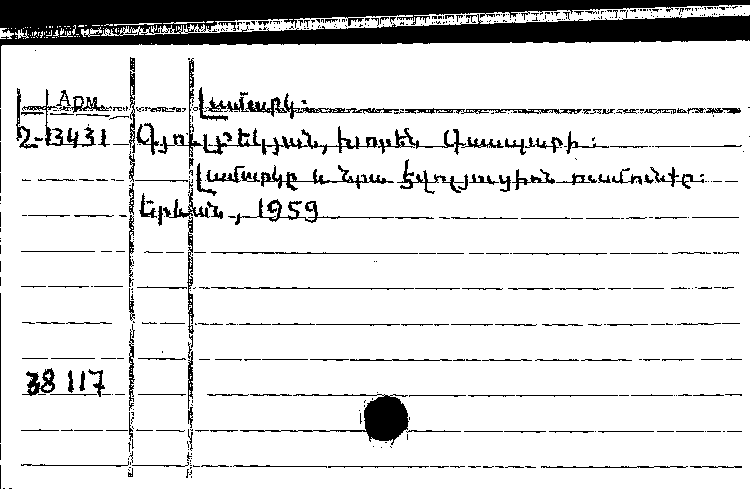 Арм.
Լամարկ.
2-13431 Գյուլբեկյան, Խորեն Գասպարի:
Լամարկը և նրա էվոլյուցիոն ուսմունքը:
Երևան, 1959
38 117